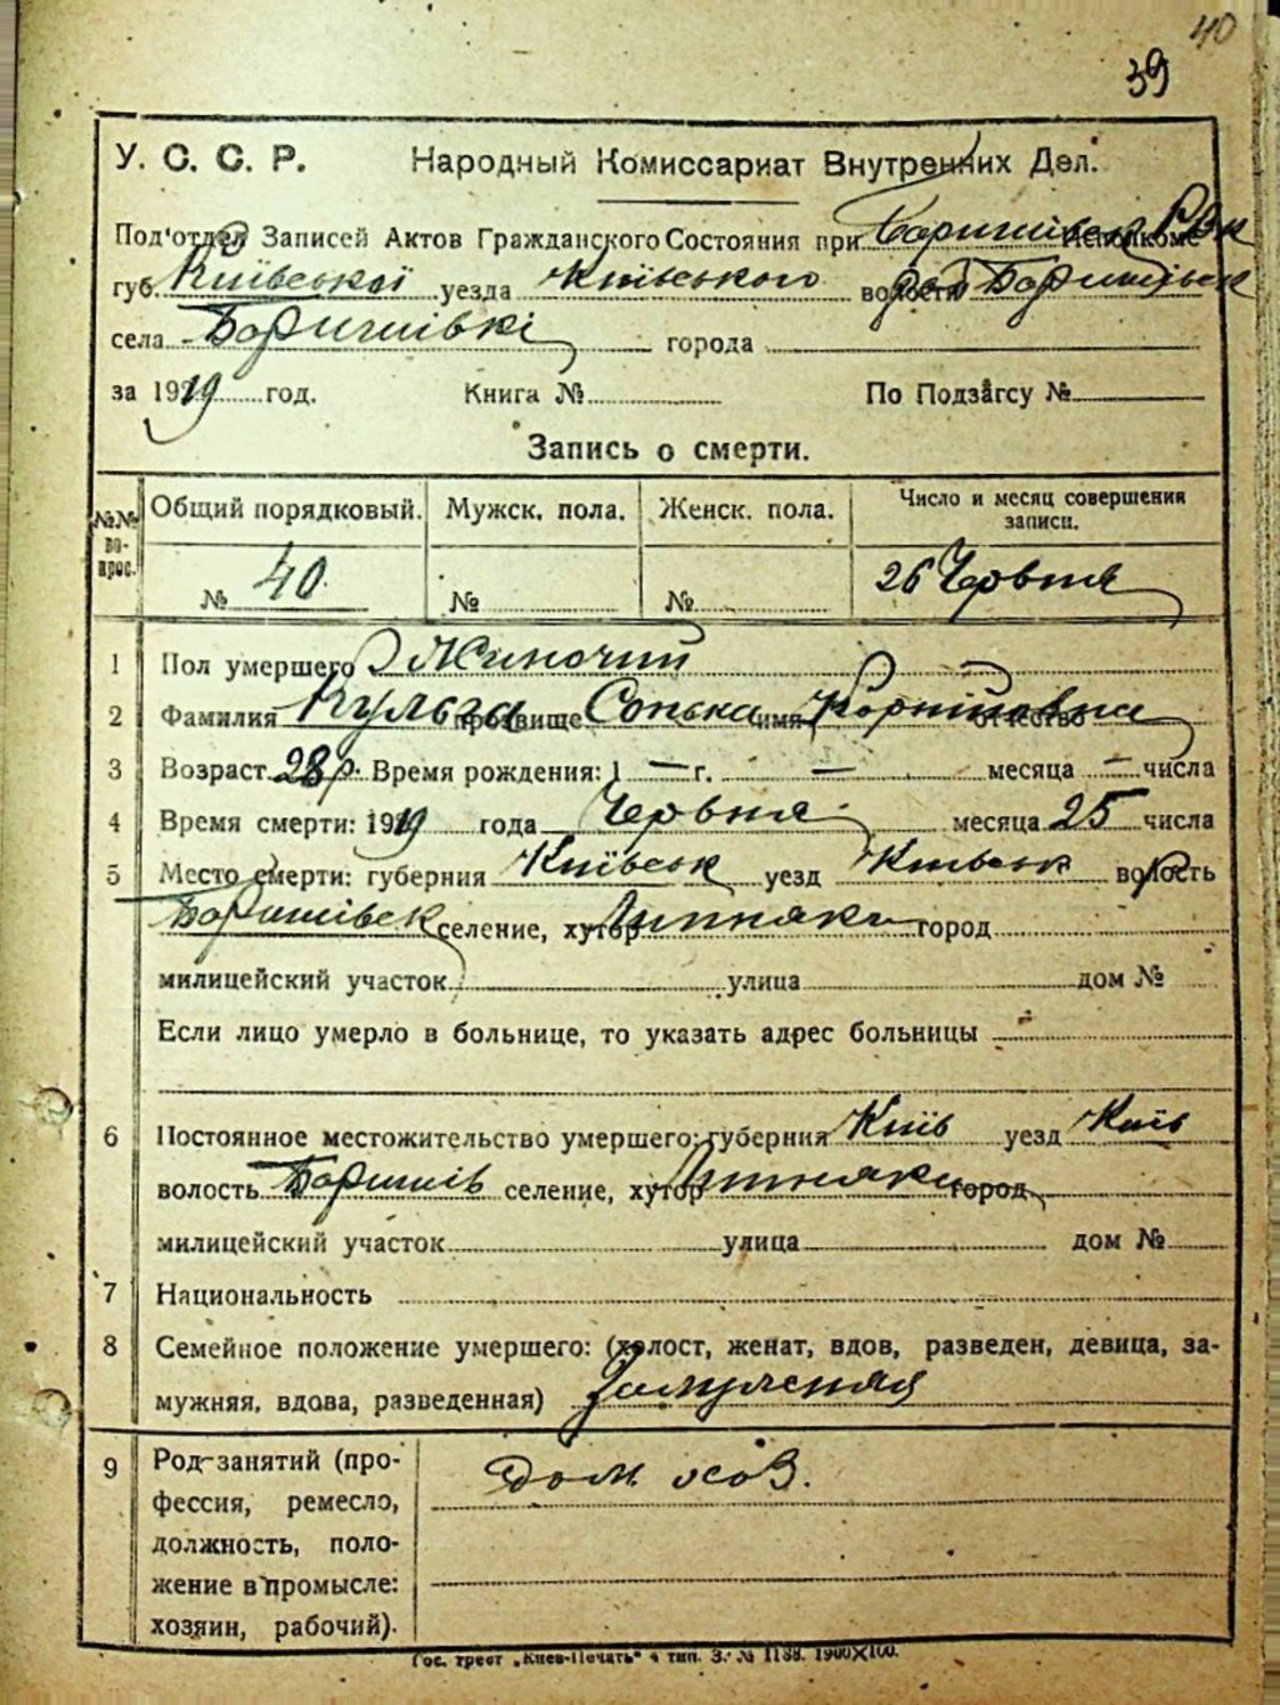 40
39
У. С. С. Р. Народный Комиссариат Внутренних Дел.
Под'отдел Записей Актов Гражданского Состояния при Баришівськ РВК Исполкоме
губ. Київської уезда Київського волости Баришівськ
села Баришівкі города
за 1919 год. Книга № По Подзагсу №
Запись о смерти.
№№ вопрос. Общий порядковый. Мужск. пола. Женск. пола. Число и месяц совершения записи.
№ 40. № № 26 Червня
1 Пол умершего Жиночий
2 Фамилия Кульга прозвище Сонька имя Корніївна отчество
3 Возраст 28 р. Время рождения: 1 — г. — месяца — числа
4 Время смерти: 1919 года Червня месяца 25 числа
5 Место смерти: губерния Київськ уезд Київськ волость
Баришівськ селение, хутор Липняки город
милицейский участок улица дом №
Если лицо умерло в больнице, то указать адрес больницы
6 Постоянное местожительство умершего: губерния Київ уезд Київ
волость Баришів селение, хутор Липняки город
милицейский участок улица дом №
7 Национальность
8 Семейное положение умершего: (холост, женат, вдов, разведен, девица, за-
мужняя, вдова, разведенная) Замужняя
9 Род занятий (про-
фессия, ремесло,
должность, поло-
жение в промысле:
хозяин, рабочий).
Дом. хоз.
Гос. трест „Киев-Печать“ 4 тип. З. № 1188. 1900X100.